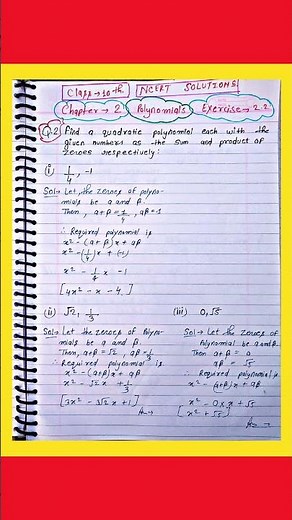 Class → 10th NCERT SOLUTIONS!
Chapter → 2 Polynomials Exercise → 2.2
Q.2 Find a quadratic polynomial each with the
given numbers as the sum and product of
zeroes respectively:
(i) 1/4, -1
Sol→ Let the zeroes of polyno-
mials be α and β.
Then, α+β = 1/4, αβ = -1
∴ Required polynomial is
x² - (α+β)x + αβ
x² - (1/4)x + (-1)
x² - 1/4 x - 1
[4x² - x - 4]
(ii) √2, 1/3
Sol→ Let the zeroes of polyno-
mials be α and β.
Then, α+β = √2, αβ = 1/3
∴ Required polynomial is
x² - (α+β)x + αβ
x² - √2 x + 1/3
[3x² - 3√2 x + 1]
Ans →
(iii) 0, √5
Sol → Let the zeroes of
Polynomial be α and β
Then α+β = 0
αβ = √5
∴ Required polynomial is
x² - (α+β)x + αβ
x² - 0×x + √5
[x² + √5]
Ans →